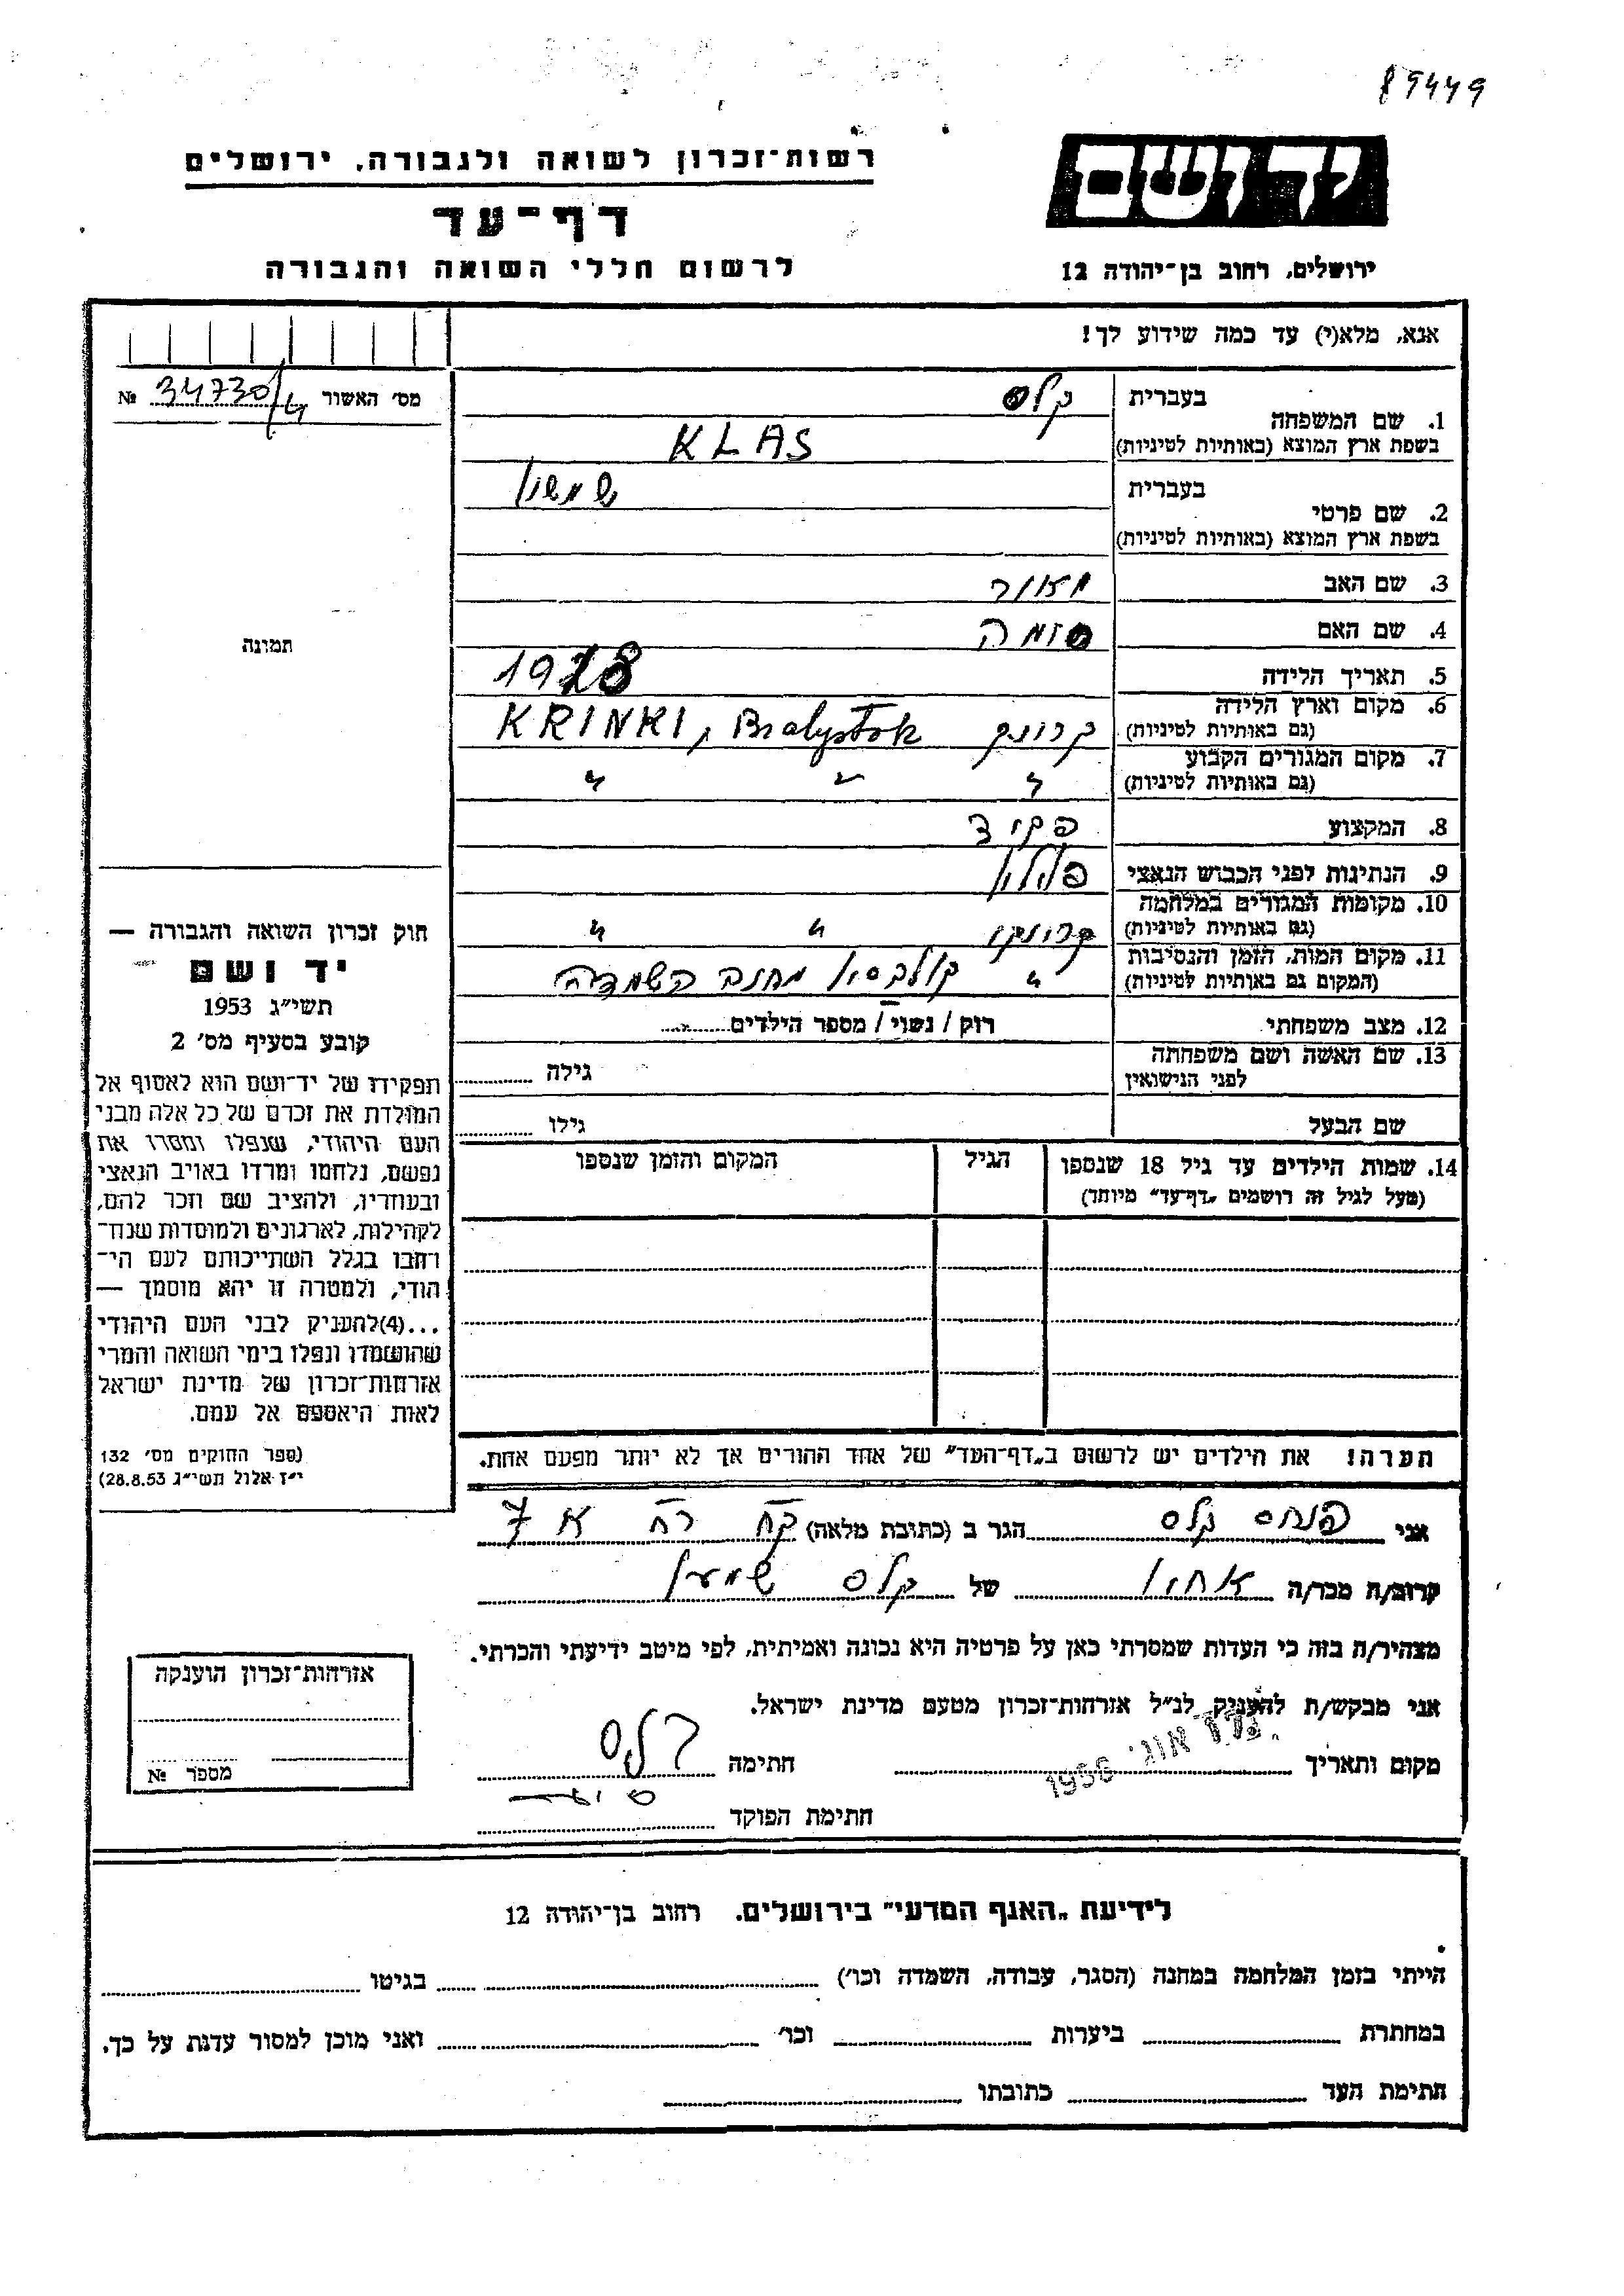 89449
יד ושם
רשות־זכרון לשואה ולגבורה, ירושלים
דף־עד
לרשום חללי השואה והגבורה
ירושלים, רחוב בן־יהודה 12
אנא, מלא(י) עד כמה שידוע לך!
מס׳ האשור 34730/4 №
1. שם המשפחה
בעברית קלס
בשפת ארץ המוצא (באותיות לטיניות) KLAS
2. שם פרטי
בעברית שמשון
בשפת ארץ המוצא (באותיות לטיניות)
3. שם האב
4. שם האם
5. תאריך הלידה 1928
6. מקום וארץ הלידה
(גם באותיות לטיניות) קרינקי KRINKI, Bialystok
7. מקום המגורים הקבוע
(גם באותיות לטיניות) " " "
8. המקצוע פקיד
9. הנתינות לפני הכבוש הנאצי פולין
10. מקומות המגורים במלחמה
(גם באותיות לטיניות) קרינקי " "
11. מקום המות, הזמן והנסיבות
(המקום גם באותיות לטיניות) " קולבסין מחנה השמדה
12. מצב משפחתי רוק / נשוי / מספר הילדים
13. שם האשה ושם משפחתה
לפני הנישואין
גילה
שם הבעל
גילו
14. שמות הילדים עד גיל 18 שנספו
(מעל לגיל זה רושמים „דף־עד” מיוחד)
הגיל
המקום והזמן שנספו
הערה! את הילדים יש לרשום ב„דף־העד” של אחד ההורים אך לא יותר מפעם אחת.
תמונה
חוק זכרון השואה והגבורה —
יד ושם
תשי״ג 1953
קובע בסעיף מס׳ 2
תפקידו של יד־ושם הוא לאסוף אל
המולדת את זכרם של כל אלה מבני
העם היהודי, שנפלו ומסרו את
נפשם, נלחמו ומרדו באויב הנאצי
ובעוזריו, ולהציב שם וזכר להם,
לקהילות, לארגונים ולמוסדות שנח־
רבו בגלל השתייכותם לעם הי־
הודי, ולמטרה זו יהא מוסמך —
...(4)להעניק לבני העם היהודי
שהושמדו ונפלו בימי השואה והמרי
אזרחות־זכרון של מדינת ישראל
לאות היאספם אל עמם.
(ספר החוקים מס׳ 132
י״ז אלול תשי״ג 28.8.53)
אני פנחס קלס הגר ב (כתובת מלאה)
קרוב/ה מכר/ה אחיו של קלס שמעון
מצהיר/ה בזה כי העדות שמסרתי כאן על פרטיה היא נכונה ואמיתית, לפי מיטב ידיעתי והכרתי.
אני מבקש/ת להעניק לנ״ל אזרחות־זכרון מטעם מדינת ישראל.
מקום ותאריך אוג׳ 1956 חתימה קלס
חתימת הפוקד
אזרחות־זכרון הוענקה
מספר №
לידיעת „האגף המדעי” בירושלים. רחוב בן־יהודה 12
הייתי בזמן המלחמה במחנה (הסגר, עבודה, השמדה וכו׳) בגיטו
במחתרת ביערות וכו׳ ואני מוכן למסור עדות על כך.
חתימת העד כתובתו